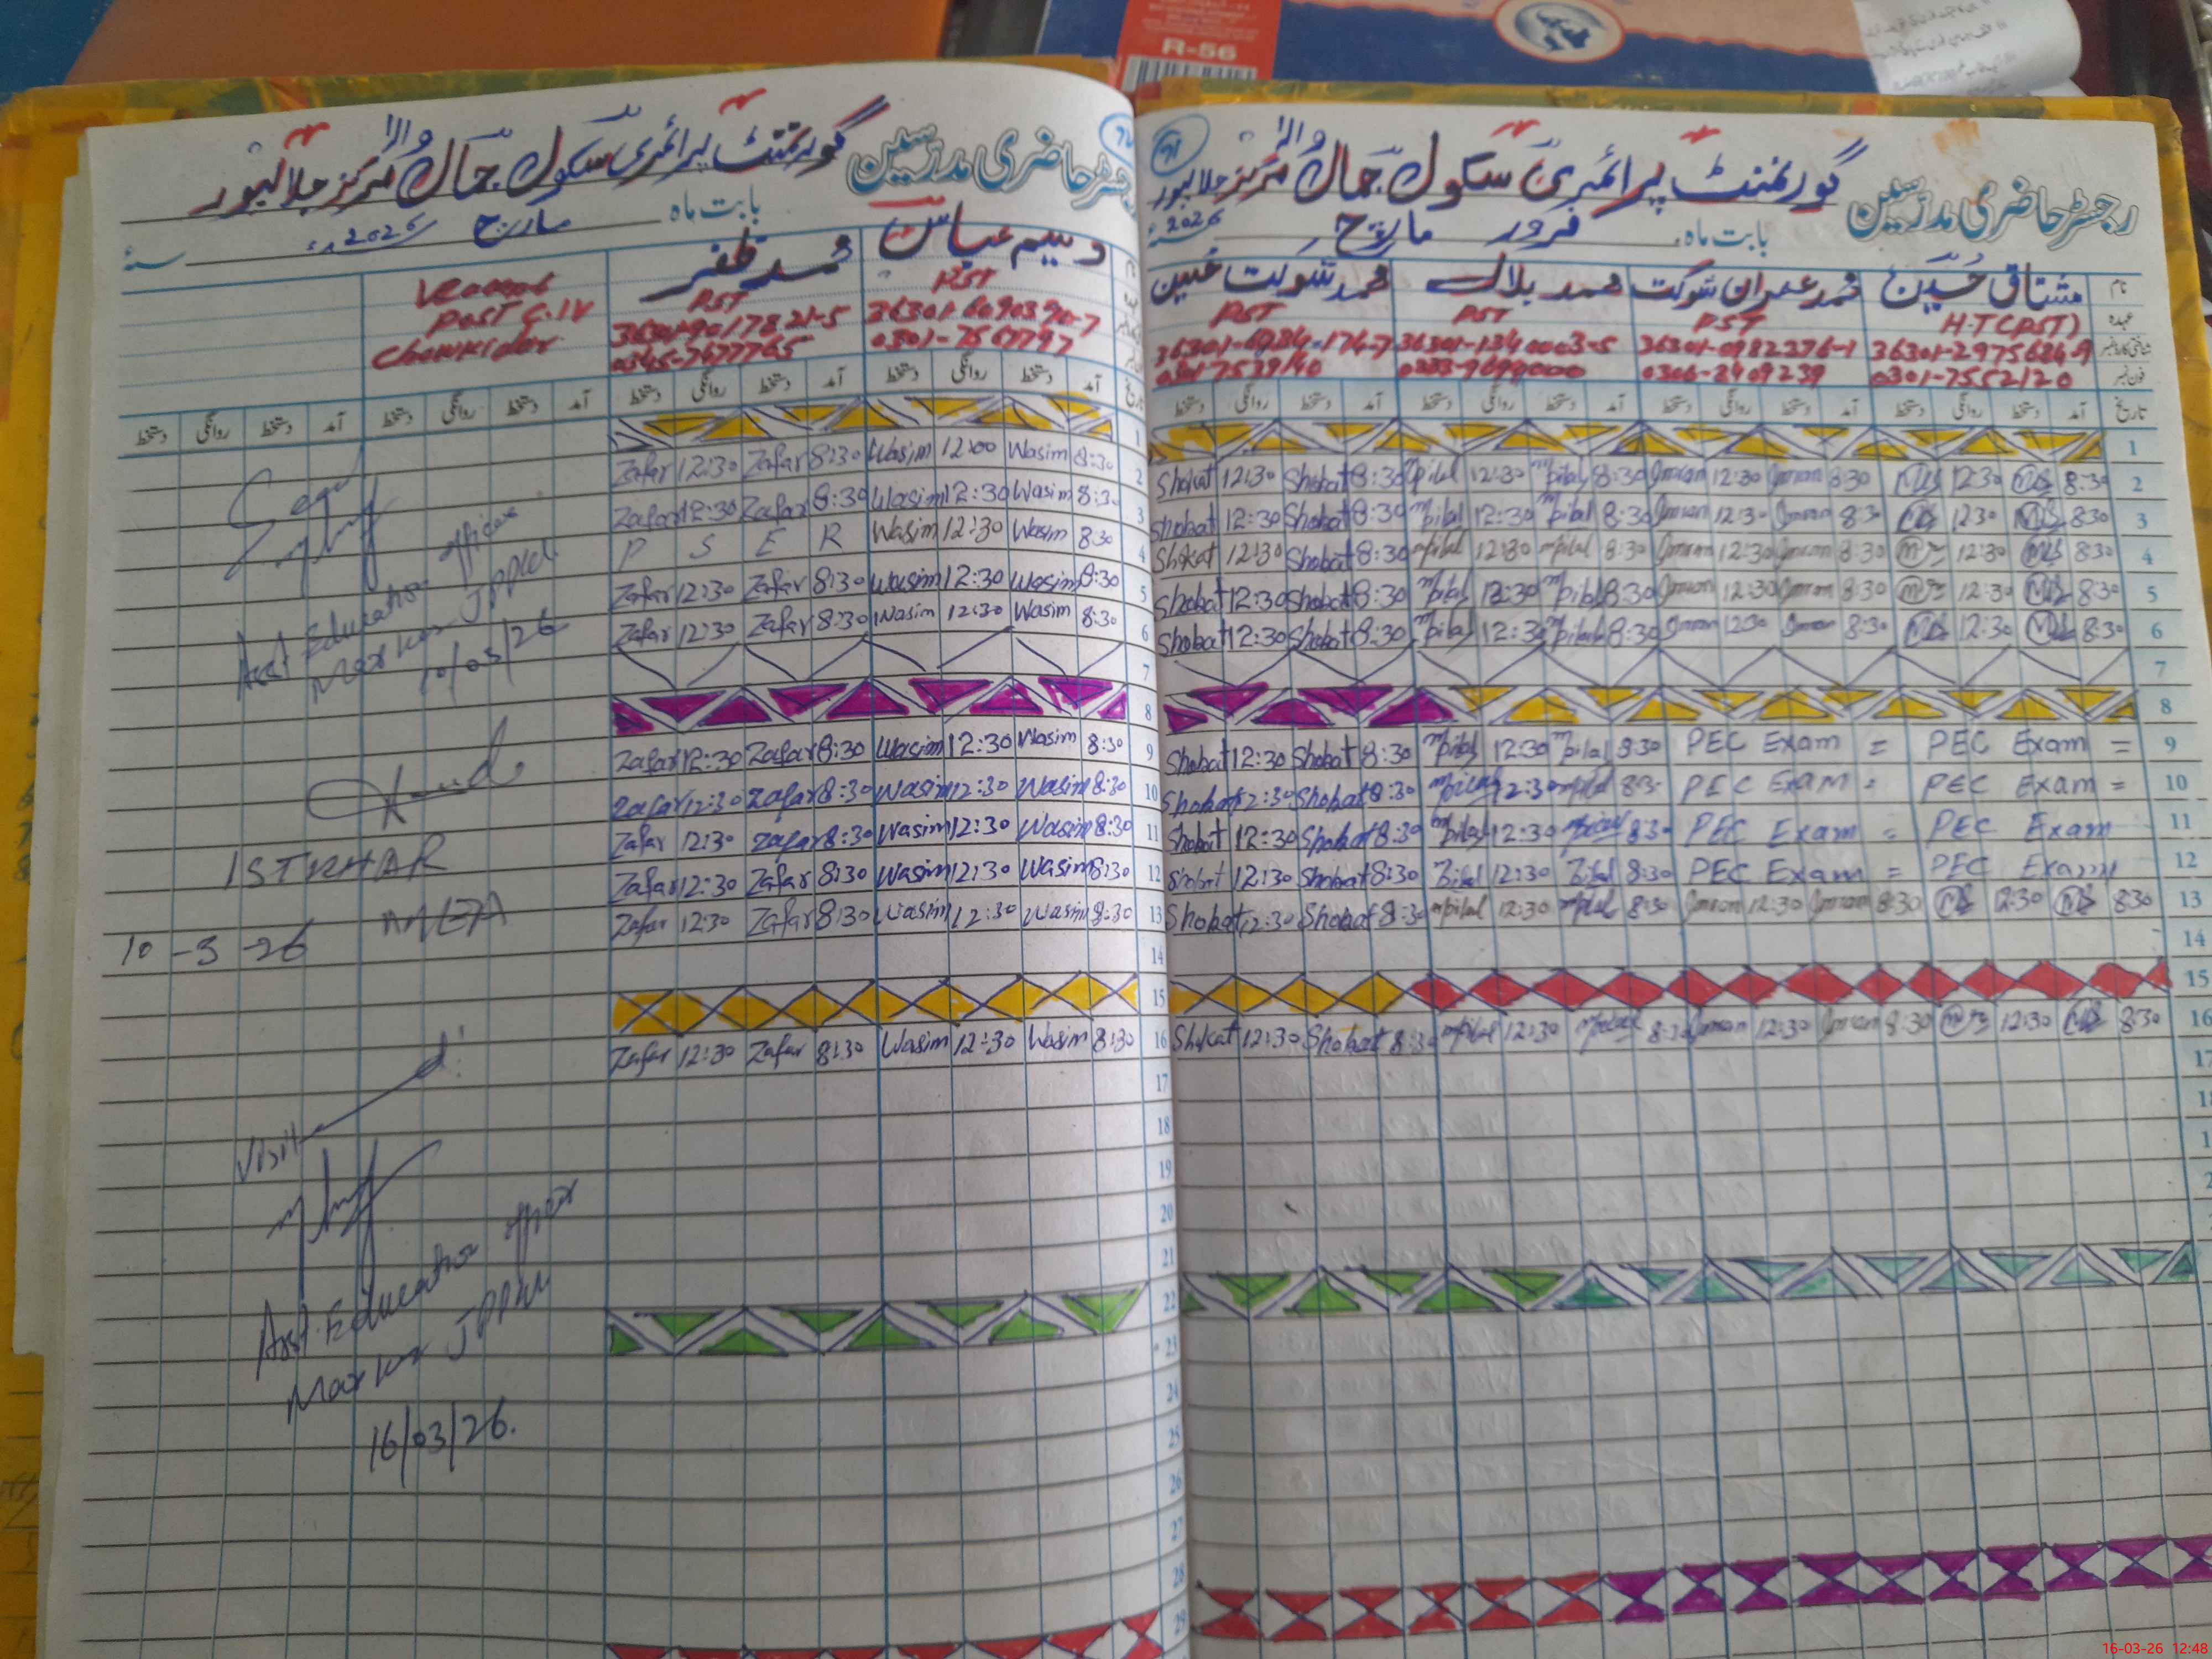 R-56
گورنمنٹ پرائمری سکول جمال والا مرکز جلالپور
رجسٹر حاضری مدرسین
بابت ماہ مارچ 2026ء
وسیم عباس
محمد ظفر
PST
PST
36301-9017821-5
0345-7477765
Post C.IV
Chowkidar
آمد دستخط روانگی دستخط آمد دستخط روانگی دستخط آمد دستخط روانگی دستخط آمد دستخط روانگی دستخط
1
2 8:30 Wasim 12:00 Wasim 8:30 Zafar 12:30 Zafar
3 8:30 Wasim 12:30 Wasim 8:30 Zafar 12:30 Zafar
4 8:30 Wasim 12:30 Wasim P S E R
5 8:30 Wasim 12:30 Wasim 8:30 Zafar 12:30 Zafar
6 8:30 Wasim 12:30 Wasim 8:30 Zafar 12:30 Zafar
8
9 8:30 Wasim 12:30 Wasim 8:30 Zafar 12:30 Zafar
10 8:30 Wasim 12:30 Wasim 8:30 Zafar 12:30 Zafar
11 8:30 Wasim 12:30 Wasim 8:30 Zafar 12:30 Zafar
12 8:30 Wasim 12:30 Wasim 8:30 Zafar 12:30 Zafar
13 8:30 Wasim 12:30 Wasim 8:30 Zafar 12:30 Zafar
14
15
16 8:30 Wasim 12:30 Wasim 8:30 Zafar 12:30 Zafar
17
18
19
20
21
22
23
24
25
26
27
28
29
Asst Education officer
Markaz JPPW
10/03/26
MEA
10-3-26
Visit
Asst. Education officer
Markaz JPPW
16/03/26.
گورنمنٹ پرائمری سکول جمال والا مرکز جلالپور
رجسٹر حاضری مدرسین
بابت ماہ مارچ 2026
نام مشتاق حسین محمد عمران شوکت محمد بلال محمد شوکت حسین
عہدہ H.T (PST) PST PST PST
36301-2975684-9 36301-0982376-1
فون نمبر 0301-7552120 0306-8409239
تاریخ آمد دستخط روانگی دستخط آمد دستخط روانگی دستخط آمد دستخط روانگی دستخط آمد دستخط روانگی دستخط
1
2 8:30 12:30 8:30 Imran 12:30 Imran 8:30 mbilal 12:30 mbilal 8:30 Shokat 12:30 Shokat
3 8:30 12:30 8:30 Imran 12:30 Imran 8:30 mbilal 12:30 mbilal 8:30 Shokat 12:30 Shokat
4 8:30 12:30 8:30 Imran 12:30 Imran 8:30 mbilal 12:30 mbilal 8:30 Shokat 12:30 Shokat
5 8:30 12:30 8:30 Imran 12:30 Imran 8:30 mbilal 12:30 mbilal 8:30 Shokat 12:30 Shokat
6 8:30 12:30 8:30 Imran 12:30 Imran 8:30 mbilal 12:30 mbilal 8:30 Shokat 12:30 Shokat
7
8
9 PEC Exam = PEC Exam = 8:30 mbilal 12:30 mbilal 8:30 Shokat 12:30 Shokat
10 PEC Exam = PEC Exam = 8:30 mbilal 12:30 mbilal 8:30 Shokat 12:30 Shokat
11 PEC Exam PEC Exam = 8:30 mbilal 12:30 mbilal 8:30 Shokat 12:30 Shokat
12 PEC Exam PEC Exam = 8:30 Bilal 12:30 Bilal 8:30 Shokat 12:30 Shokat
13 8:30 12:30 8:30 Imran 12:30 Imran 8:30 mbilal 12:30 mbilal 8:30 Shokat 12:30 Shokat
14
15
16 8:30 12:30 8:30 Imran 12:30 Imran 8:30 mbilal 12:30 mbilal 8:30 Shokat 12:30 Shokat
16-03-26 12:48